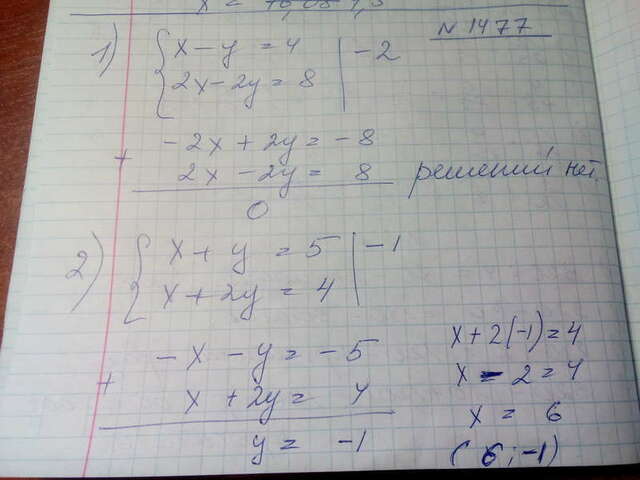 N 1477
1) { x - y = 4 | -2
2x - 2y = 8
+ -2x + 2y = -8
2x - 2y = 8
0 решений нет.
2) { x + y = 5 | -1
x + 2y = 4
+ -x - y = -5
x + 2y = 4
y = -1
x + 2(-1) = 4
x - 2 = 4
x = 6
(6; -1)